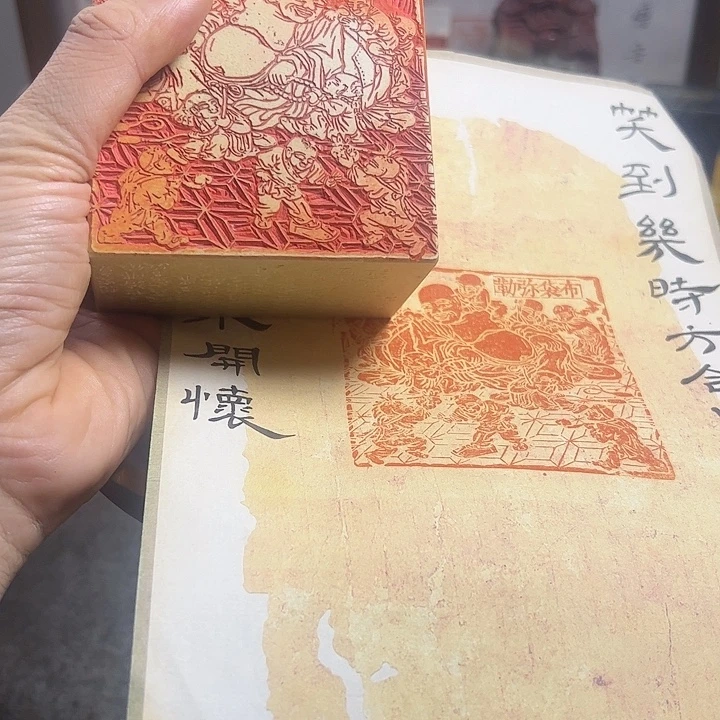 笑到幾時方合
布袋弥勒
開懷